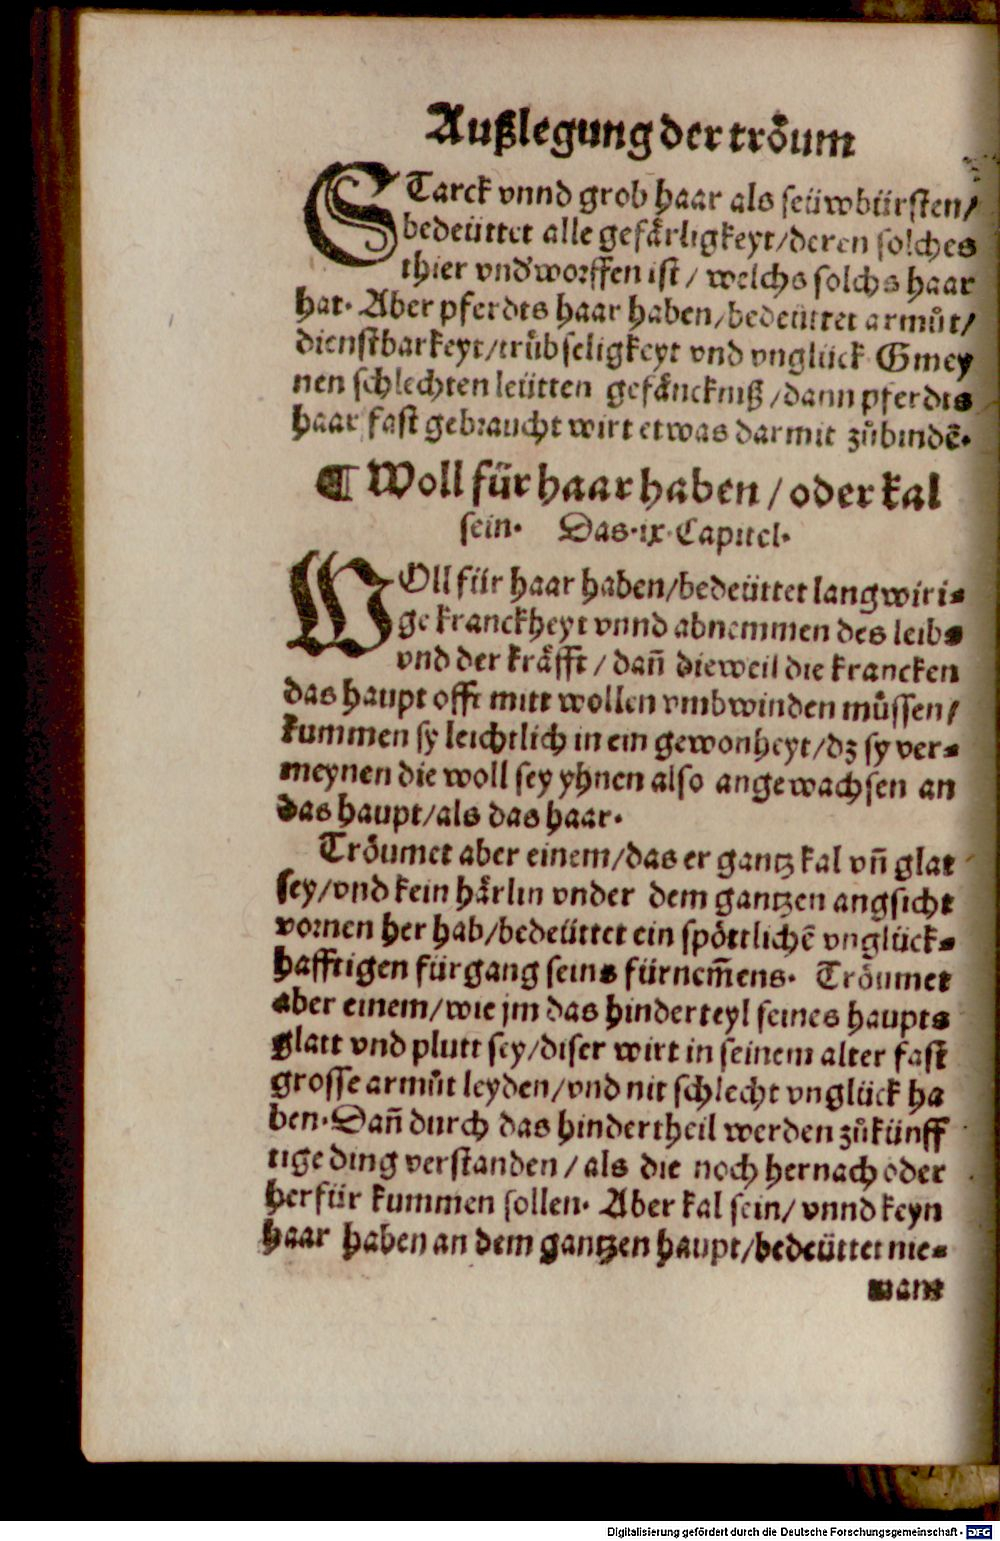 Außlegung der tröum
STarck vnnd grob haar als seüwbürsten/
bedeüttet alle gefårligkeyt/deren solches
thier vnd'worffen ist/ welchs solchs haar
hat. Aber pferdts haar haben/bedeüttet armůt/
dienstbarkeyt/trůbseligkeyt vnd vnglück Gmey
nen schlechten leütten gefåncknuß/dann pferdts
haar fast gebraucht wirt etwas darmit zůbindē.
¶ Woll für haar haben/oder kal
sein. Das.ix.Capitel.
WOll für haar haben/bedeüttet langwiri⸗
ge kranckheyt vnnd abnemmen des leibs
vnd der kråfft/ dañ dieweil die krancken
das haupt offt mitt wollen vmbwinden můssen/
kummen sy leichtlich in ein gewonheyt/dz sy ver⸗
meynen die woll sey yhnen also angewachsen an
das haupt/als das haar.
Tröumet aber einem/das er gantz kal vñ glat
sey/vnd kein hårlin vnder dem gantzen angsicht
vornen her hab/bedeüttet ein spöttlichē vnglück⸗
hafftigen fürgang seins fürnem̃ens. Tröumet
aber einem/wie jm das hinderteyl seines haupts
glatt vnd plutt sey/diser wirt in seinem alter fast
grosse armůt leyden/vnd nit schlecht vnglück ha
ben. Dañ durch das hindertheil werden zůkünff
tige ding verstanden/ als die noch hernach oder
herfür kummen sollen. Aber kal sein/ vnnd keyn
haar haben an dem gantzen haupt/bedeüttet nie⸗
mant
Digitalisierung gefördert durch die Deutsche Forschungsgemeinschaft - DFG